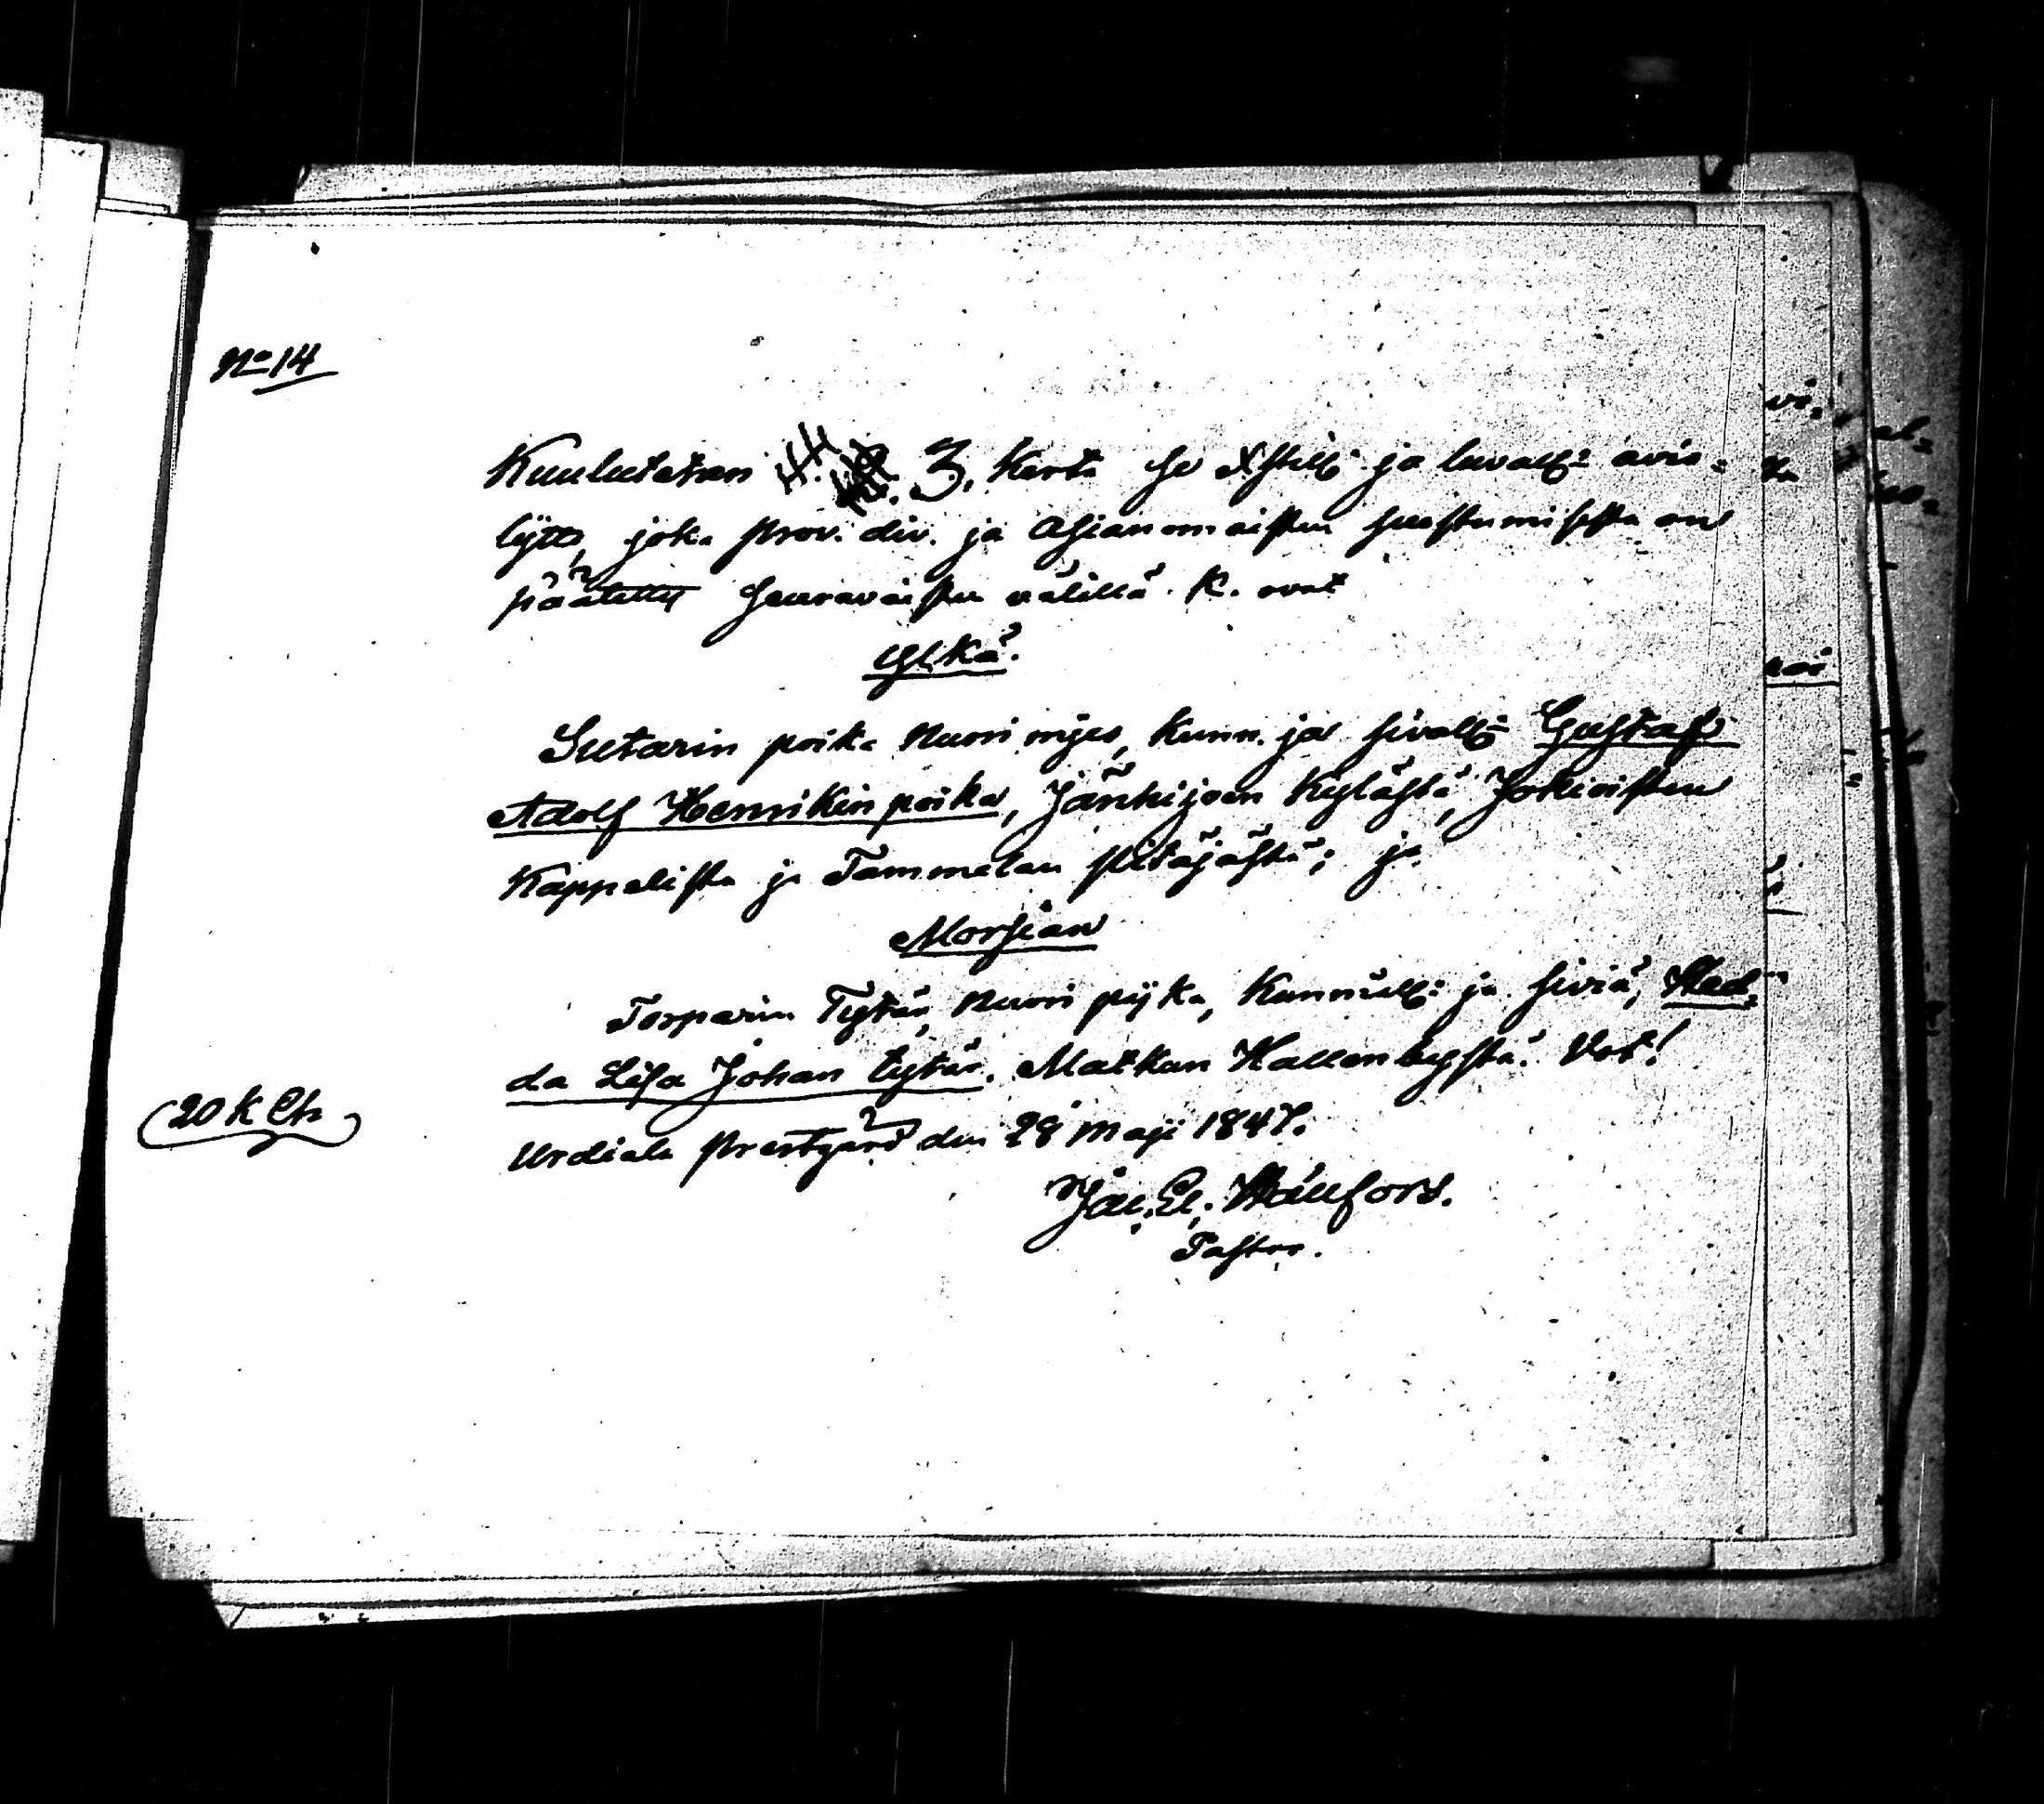 No 14
Kuulutetan 3, Kerta se Xstill: ja luvall: avio-
lijtto, joka prov. div. ja Asianomaisten suostumisesta on
päätetty seuravaisten välillä. K. ovat
Ylkä.
Sutarin poika Nuori mjes, Kunn. ja sivall: Gustaf
Adolf Henrikin poika, Jänhijoen Kylästä, Jokioisten
Kappelista ja Tammelan pitäjästä; ja
Morsian
Torparin Tytär, Nuori pijka, Kunniall: ja siviä, Hed-
da Lisa Johan tytär. Matkun Hallenbystä. Vot!
20 K Ct
Urdiala Prestgård den 28 Maji 1847.
Jac. El. Hällfors.
Pastor.